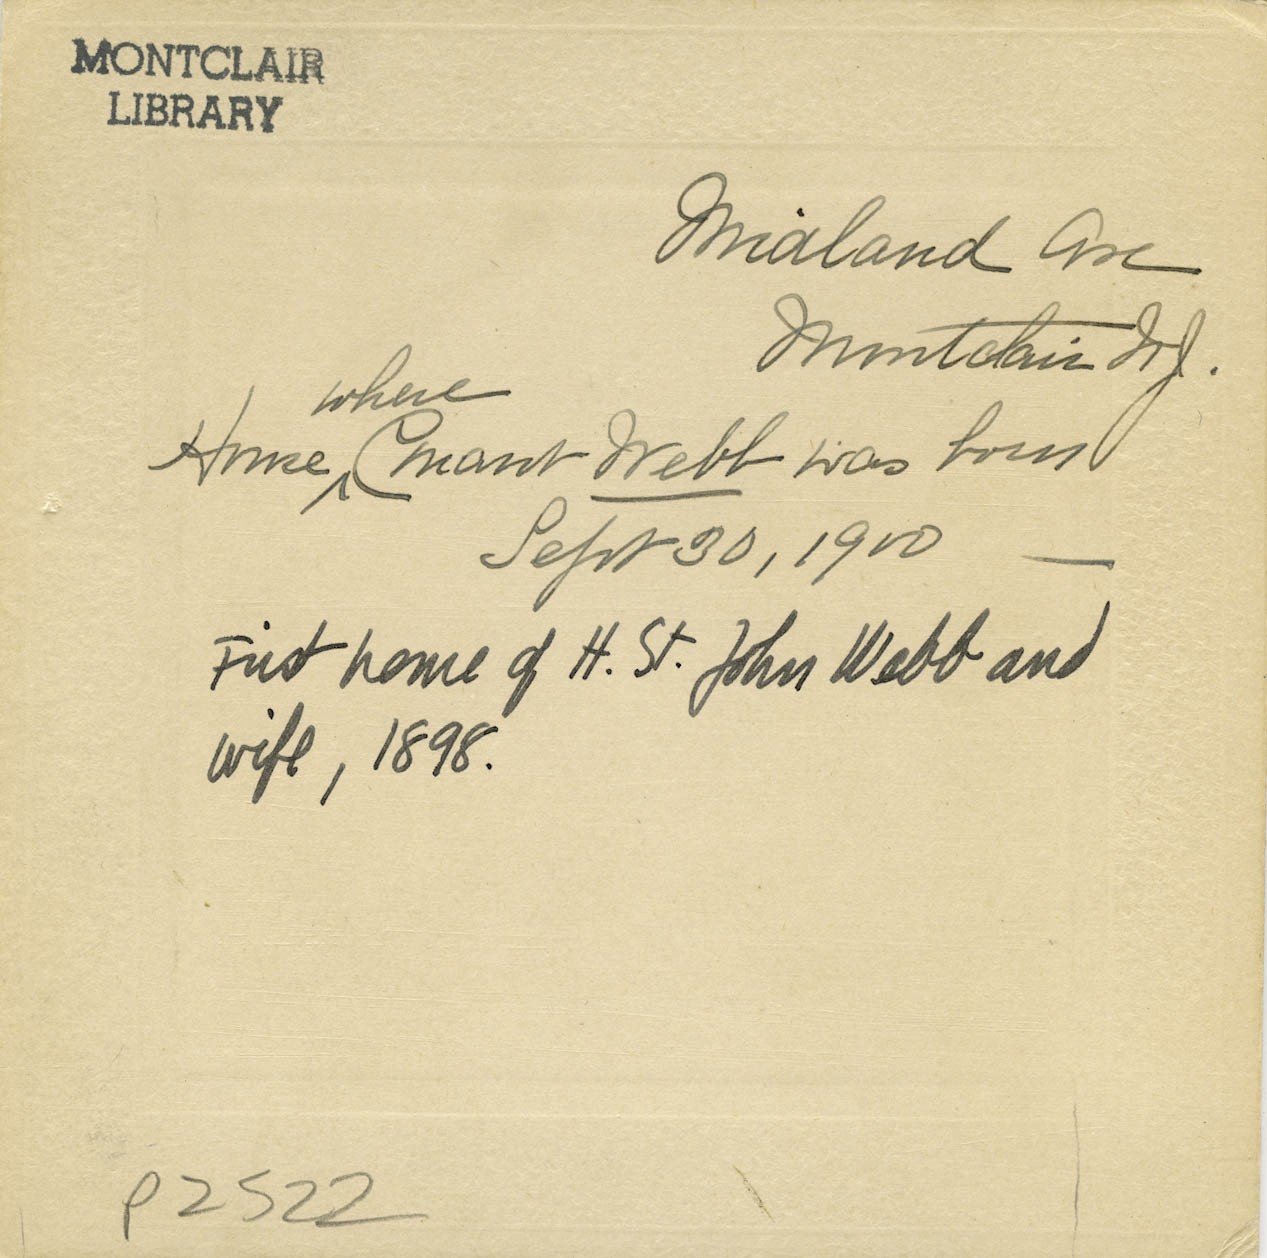 MONTCLAIR
LIBRARY
Midland Ave
Montclair N.J.
where
House, Conant Webb was born
Sept 30, 1900 —
First home of H. St. John Webb and
wife, 1898.
P2522